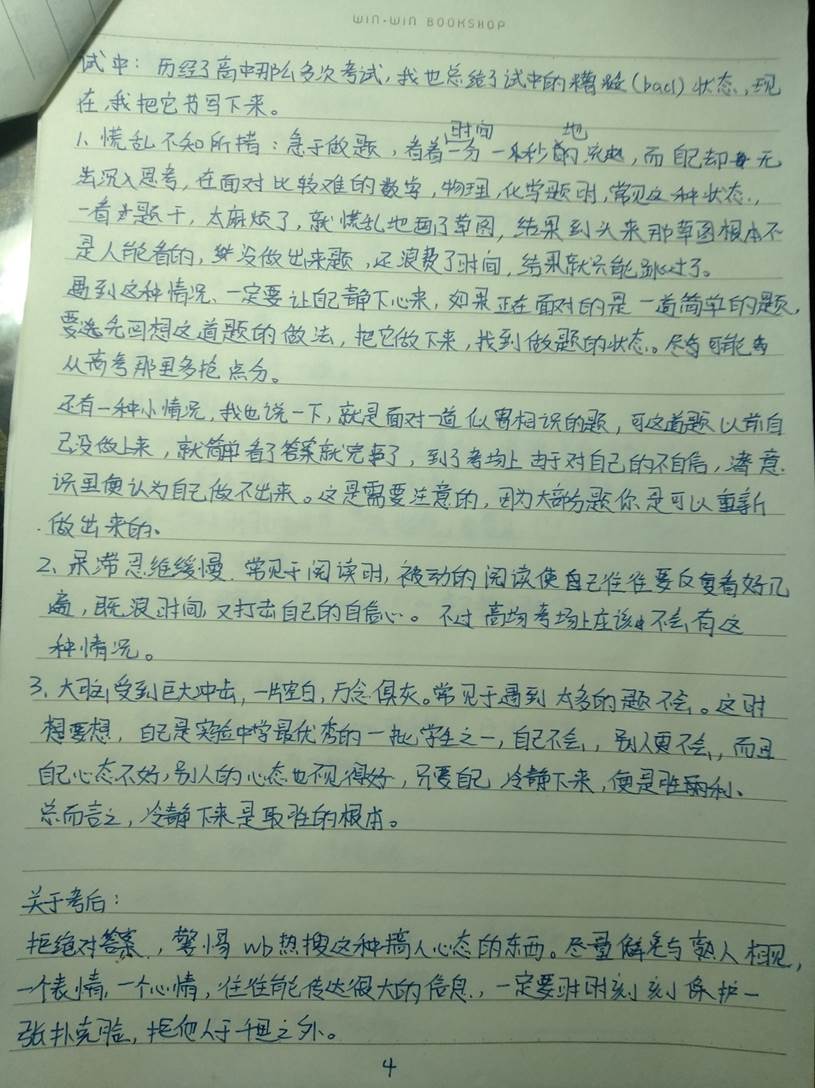 WIN·WIN BOOKSHOP
试中：历经了高中那么多次考试，我也总结了试中的糟糕（bad）状态，现
在我把它书写下来。
1、慌乱不知所措：急于做题，看着时间一分一秒地流逝，而自己却无
法沉入思考，在面对比较难的数学，物理，化学题时，常见这种状态，
一看题干，太麻烦了，就慌乱地画了草图，结果到头来那草图根本不
是人能看的，没做出来题，还浪费了时间，结果就只能跳过了。
遇到这种情况，一定要让自己静下心来，如果正在面对的是一道简单的题，
要先回想这道题的做法，把它做下来，找到做题的状态。尽可能
从高考那里多抢点分。
还有一种小情况，我也说一下，就是面对一道似曾相识的题，可这道题以前自
己没做上来，就简单看了答案就完事了，到了考场上由于对自己的不自信，潜意
识里便认为自己做不出来。这是需要注意的，因为大部分题你是可以重新
做出来的、
2、呆滞思维缓慢、常见于阅读时，被动的阅读使自己往往要反复看好几
遍，既浪时间，又打击自己的自信心。不过高考场上应该不会有这
种情况。
3、大脑受到巨大冲击，一片空白，万念俱灰。常见于遇到太多的题不会。这时
要想，自己是实验中学最优秀的一批学生之一，自己不会，别人更不会，而且
自己心态不好，别人的心态也不见得好，只要自己冷静下来，便是胜利、
总而言之，冷静下来是取胜的根本。
关于考后：
拒绝对答案，警惕wb热搜这种搞人心态的东西。尽量避免与熟人相见，
一个表情，一个心情，往往能传达很大的信息，一定要时时刻刻保护一
张扑克脸，拒他人于千里之外。
4